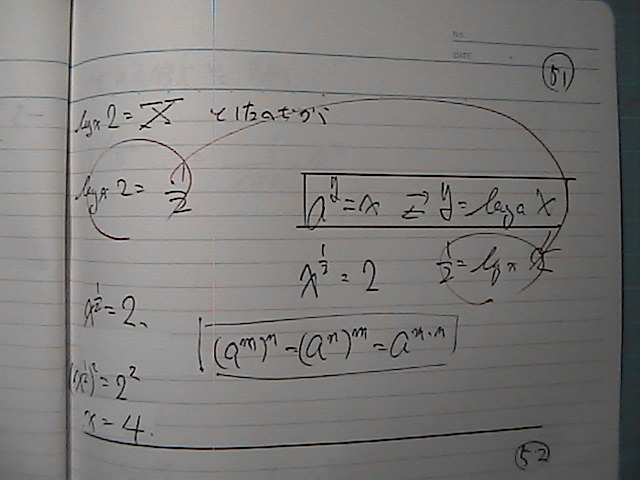 No.
DATE
51
log x 2 = X としたのだから
log x 2 = 1/2
a^y = x ⇄ y = log a x
x^{1/2} = 2
1/2 = log x 2
x^{1/2} = 2.
(a^m)^n = (a^n)^m = a^{m·n}
(x^{1/2})^2 = 2^2
x = 4.
52